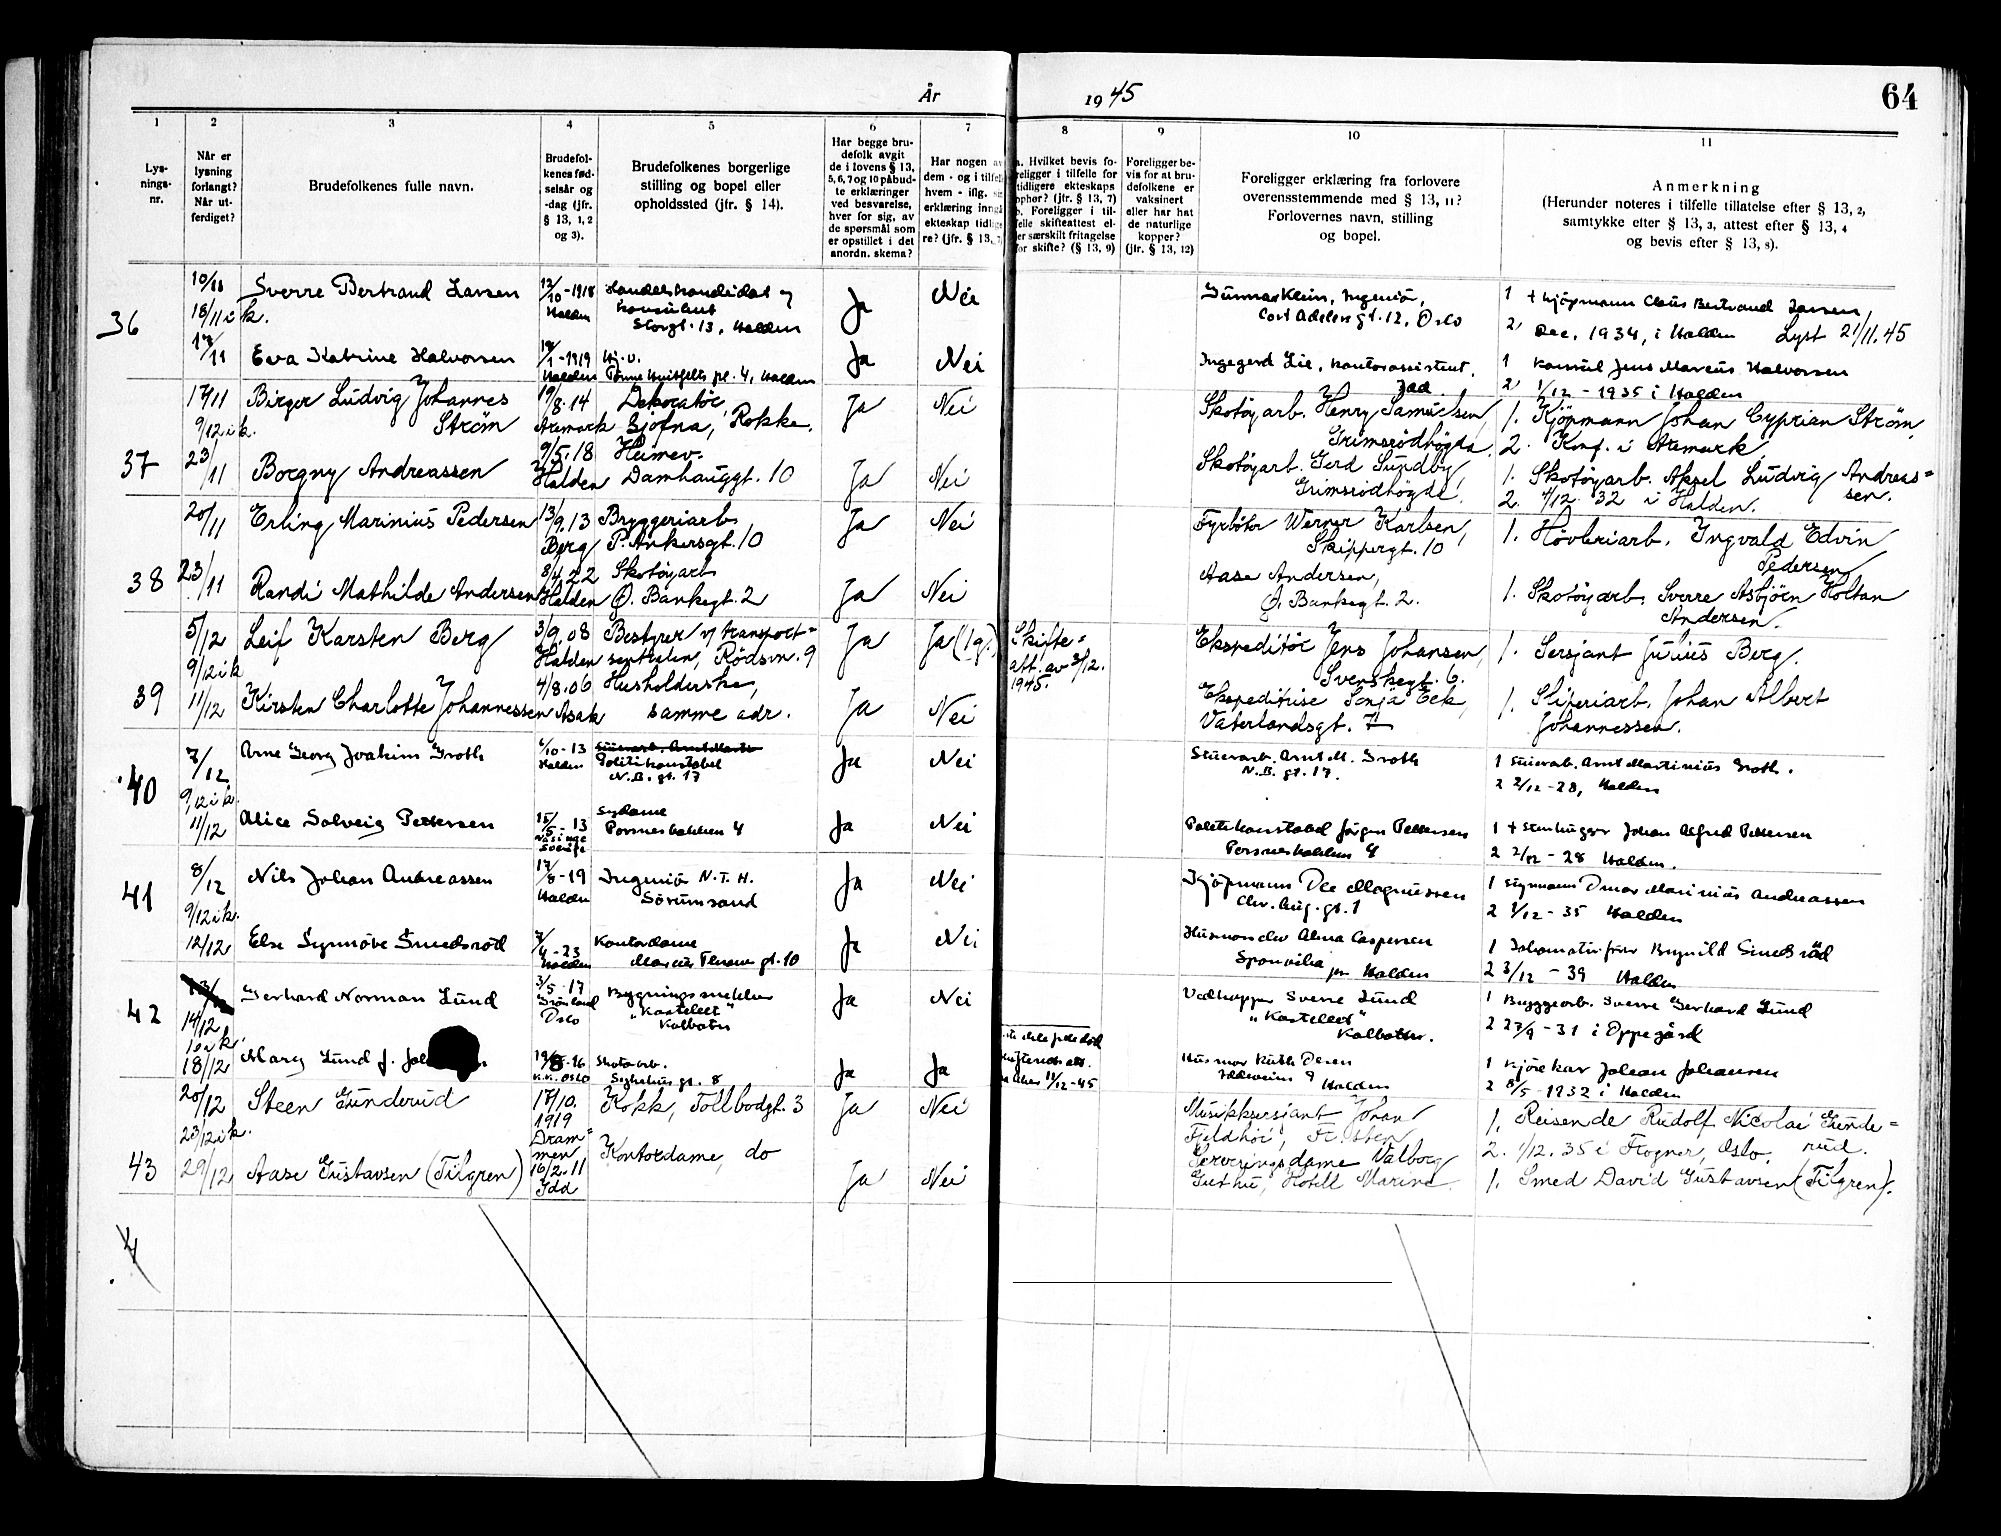 År
1945
64
1
2
3
4
5
6
7
8
9
10
11
Lys-
nings-
nr.
Når er
lysning
forlangt?
Når ut-
ferdiget?
Brudefolkenes fulle navn.
Brudefol-
kenes fød-
selsår og
-dag (jfr.
§ 13, 1, 2
og 3).
Brudefolkenes borgerlige
stilling og bopel eller
opholdssted (jfr. § 14).
Har begge bru-
defolk avgit
de i lovens § 13,
5, 6, 7 og 10 påbud-
te erklæringer
ved besvarelse,
hver for sig, av
de spørsmål som
er opstillet i det
anordn. skema?
Har nogen av
dem - og i tilfelle
hvem - iflg.
erklæring inngå
ekteskap tidlige
re? (jfr. § 13,
a. Hvilket bevis fo-
religger i tilfelle for
tidligere ekteskaps
ophør? (jfr. § 13, 7)
b. Foreligger i til-
felle skifteattest el-
ler særskilt fritagelse
for skifte? (§ 13, 9)
Foreligger be-
vis for at bru-
defolkene er
vaksinert
eller har hat
de naturlige
kopper?
(jfr. § 13, 12)
Foreligger erklæring fra forlovere
overensstemmende med § 13, 11?
Forlovernes navn, stilling
og bopel.
Anmerkning
(Herunder noteres i tilfelle tillatelse efter § 13, 2,
samtykke efter § 13, 3, attest efter § 13, 4
og bevis efter § 13, 8).
36
10/11
18/11 i k.
Sverre Bertrand Larsen
12/10-1918
Halden
Handelskandidat og
konsulent
Storgt. 13, Halden
Ja
Nei
Gunnar Klein, Ingeniør,
Cort Adelers gt. 12, Oslo
1 + kjøpmann Claus Bertrand Larsen
2 Dec. 1934, i Halden Lyst 21/11.45
Eva Katrine Halvorsen
1-1919
Halden
Tønne Huitfelts pl. 4, Halden
Ja
Nei
Ingegerd Lie, kontorassistent,
Idd
1 Konsul Jens Marcus Halvorsen
2 1/12 - 1935 i Halden
37
17/11
9/12 i k.
Birger Ludvig Johannes
Strøm
19/8.14
Aremark
Dekoratør
Sjøfna, Rokke.
Ja
Nei
Skotøyarb. Henry Samuelsen,
Grimsrødhøgda
1. Kjøpmann Johan Cyprian Strøm.
2. Konf. i Aremark
23/11
Borgny Andreassen
9/5.18
Halden
Heimev.
Damhauggt. 10
Ja
Nei
Skotøyarb. Gerd Sundby
Grimsrødhøgda.
1. Skotøyarb. Aksel Ludvig Andreas=
sen.
2. 4/12 32 i Halden.
38
20/11
Erling Marinius Pedersen
13/9.13
Berg
Bryggeriarb.
P. Ankersgt. 10
Ja
Nei
Fyrbøter Werner Karlsen,
Skippergt. 10
1. Høvleriarb. Ingvald Edvin
Pedersen
23/11
Randi Mathilde Andersen
8/4.22
Halden
Skotøyarb
Ø. Bankegt. 2
Ja
Nei
Aase Andersen,
Ø. Bankegt. 2.
1. Skotøyarb. Sverre Asbjørn Holtan
Andersen.
39
5/12
9/12 i k
Leif Karsten Berg
3/9.08
Halden
Bestyrer v/ transport=
sentralen, Rødsvn. 9
Ja
Ja (1 g.)
Skifte=
att. av 3/12.
1945.
Ekspeditør Jens Johansen,
Svenskegt. 6.
1. Sersjant Julius Berg.
11/12
Kirsten Charlotte Johannessen
4/8.06
Asak
Husholderske,
samme adr.
Ja
Nei
Ekspeditrise Senja Eek,
Vaterlandsgt. 7
1. Sliperiarb. Johan Albert
Johannessen.
40
7/12
9/12 i k.
Arne Georg Joakim Groth
6/10-13
Halden
Politikonstabel
N. B. gt. 17
Ja
Nei
Stuerarb. Arnt M. Groth
N. B. gt. 17.
1 Stuerarb. Arnt Martinius Groth.
2 2/12-28, Halden
11/12
Alice Solveig Pettersen
15/5-13
Sverige
Sydame
Porsnesbakken 4
Ja
Nei
Politikonstabel Jørgen Pettersen
Porsnesbakken 4
1 + Stenhugger Johan Alfred Pettersen
2 2/12-28 Halden.
41
8/12
9/12 i k.
Nils Johan Andreassen
17/8-19
Halden
Ingeniør N.T.H.
Sørumsand
Ja
Nei
Kjøpmann Ole Magnussen
Chr. Aug. gt. 1
1 Styrmann Omar Marinius Andreassen
2 1/12-35 Halden
12/12
Else Synnøve Smedsrød
7/4-23
Halden
Kontordame
Marcus Thrane gt. 10
Ja
Nei
Husmor Alma Caspersen
Sponvika pr Halden
1 Brynild Smedsrød
2 3/12 - 39 Halden
42
14/12
18/12
Gerhard Norman Lund
3/5-17
Grønland
Oslo
Bygningssnekker
"Kastellet"
Kolbotn
Ja
Nei
Vedhugger Sverre Lund
"Kastellet"
Kolbotn.
1 Byggearb. Sverre Gerhard Lund
2 27/9-31 i Oppegård
Mary Lund f.
Skotøarb.
Sykehus gt. 8
Ja
Ja
11/12-45
Husmor Ruth Olsen
Halden
1 Kjørekar Johan Johansen
2 8/5-1932 i Halden
43
20/12
23/12 i k.
Steen Gunderud
17/10.
1919
Dram=
men
Kokk, Tollbodgt. 3
Ja
Nei
Musikksersjant Johan
Fjeldhøi, Fr.sten
1. Reisende Rudolf Nicolai Gunde=
rud.
2. 1/12.35 i Frogner, Oslo.
29/12
Aase Gustavsen (Tilgren)
16/2.11
Idd
Kontordame, do
Ja
Nei
Serveringsdame Valborg
Guthu, Hotell Marina.
1. Smed David Gustavsen (Tilgren).